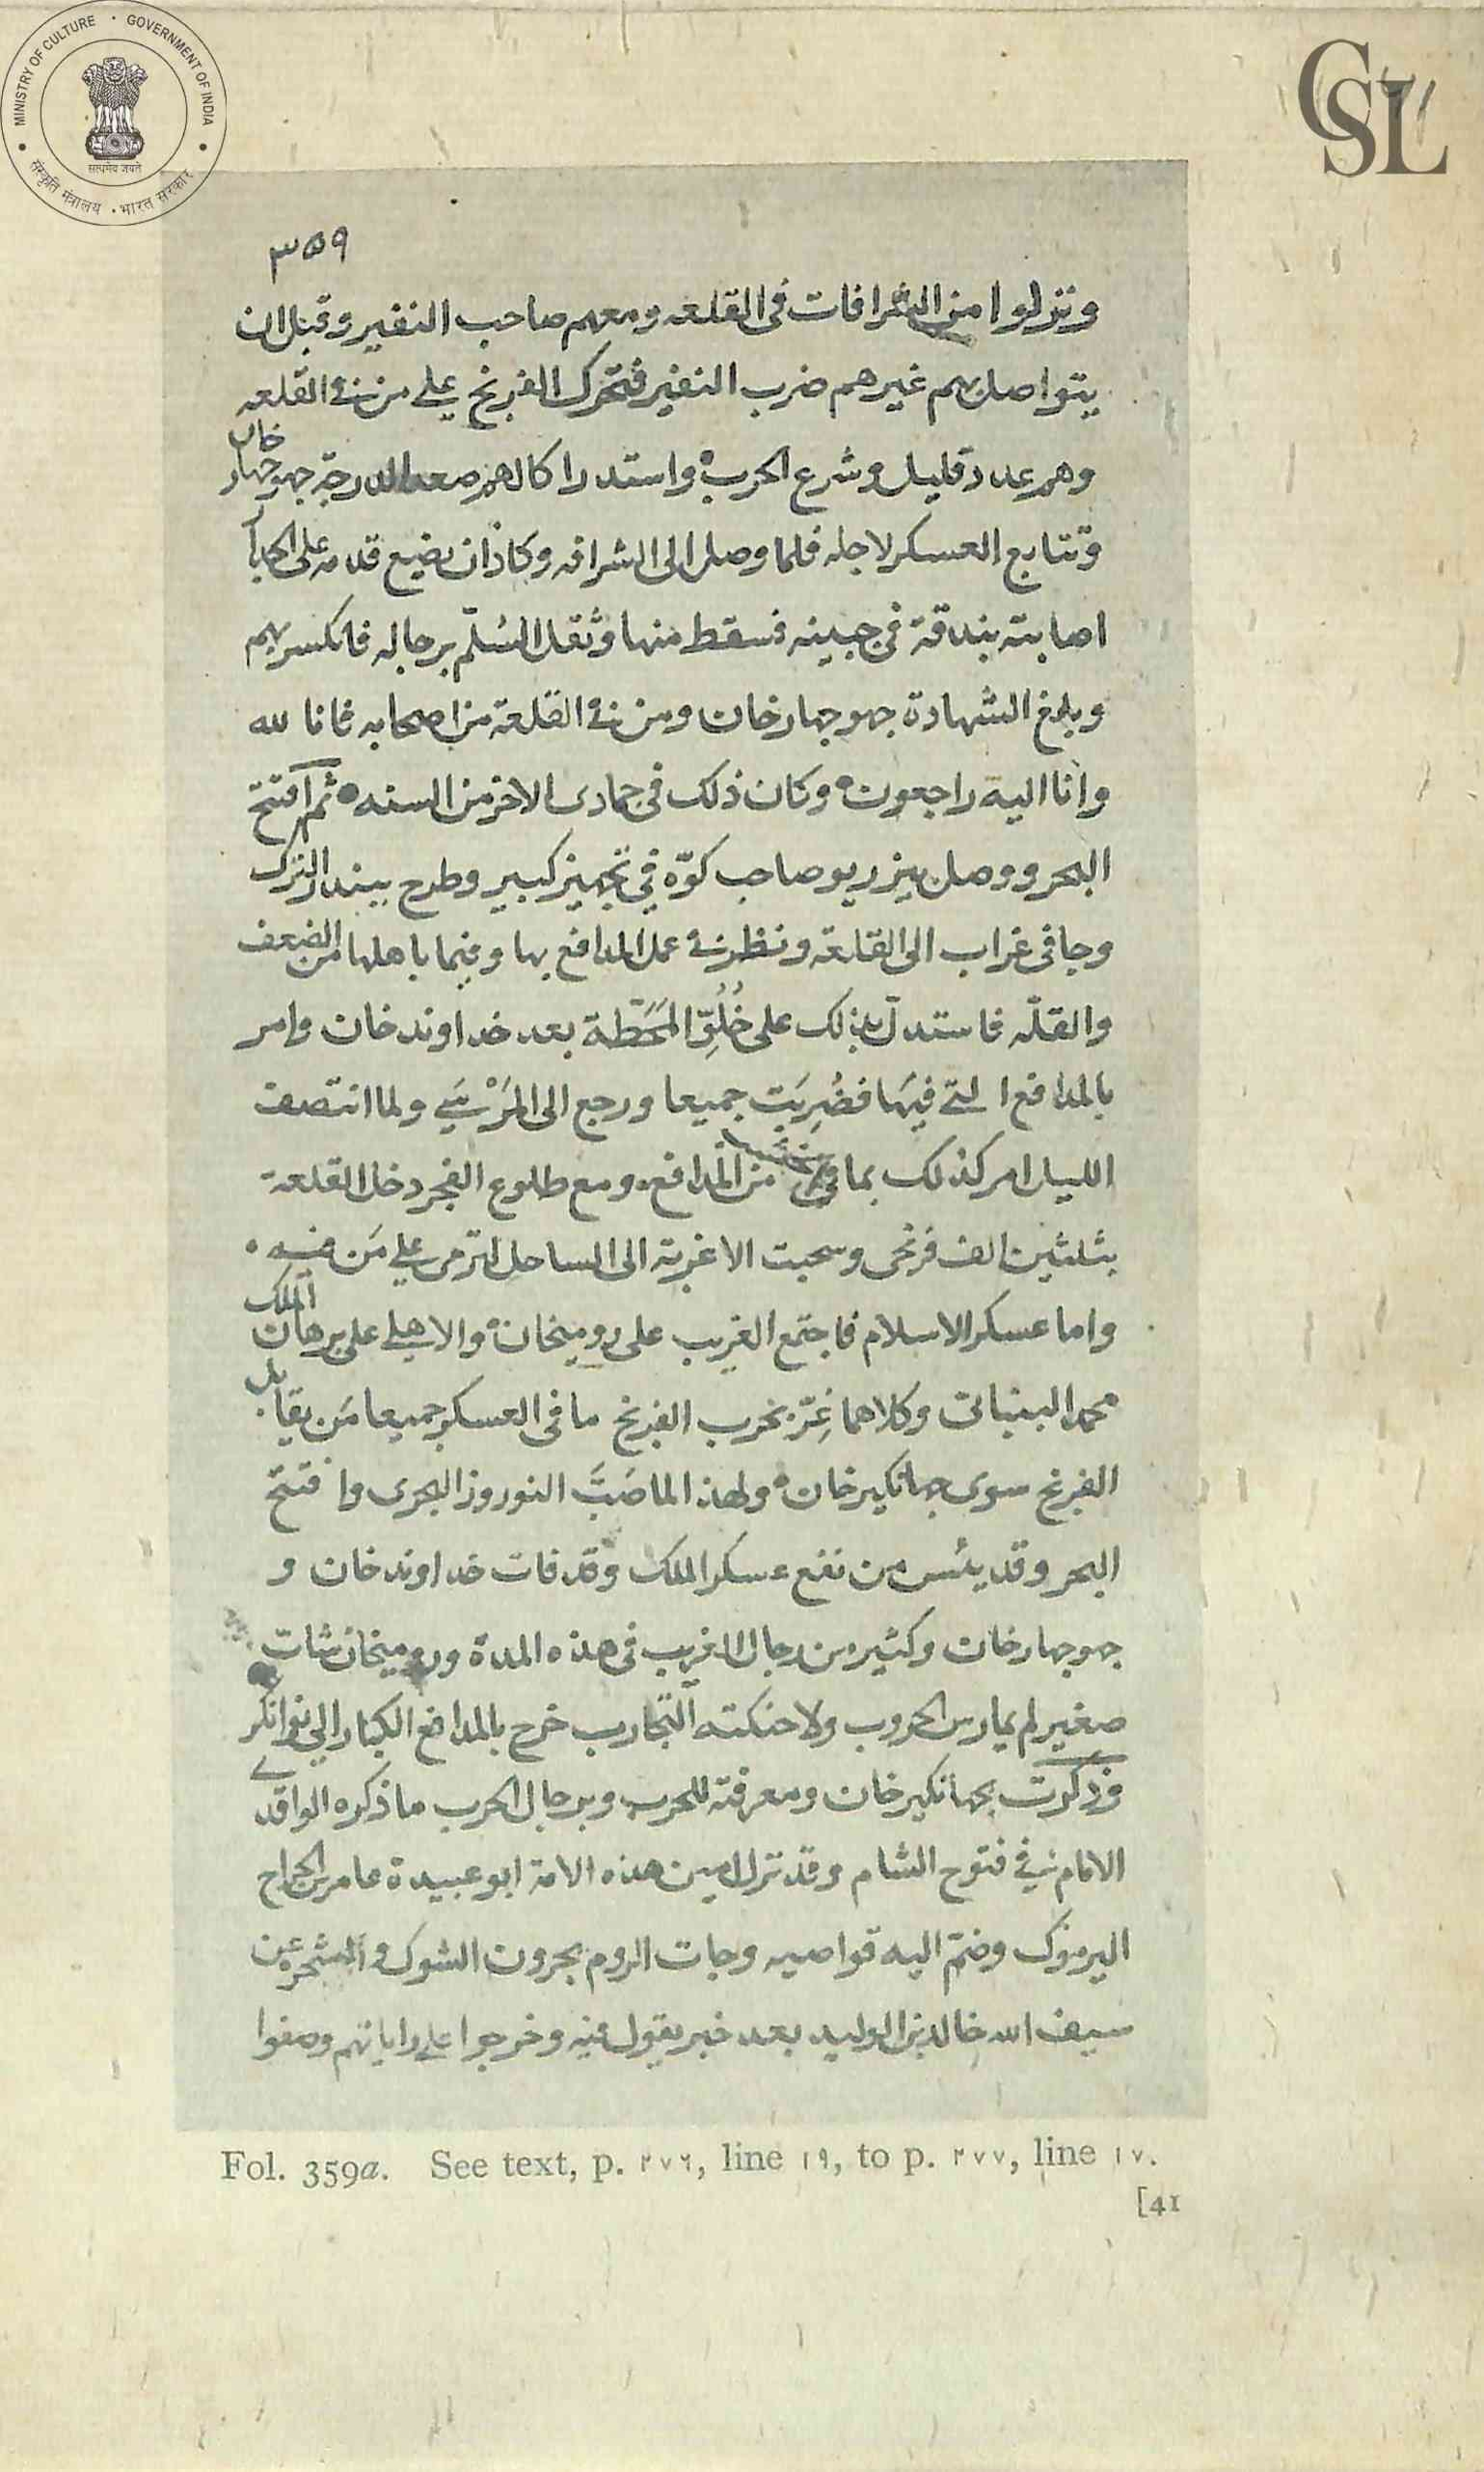 MINISTRY OF CULTURE · GOVERNMENT OF INDIA
सत्यमेव जयते
संस्कृति मंत्रालय · भारत सरकार
CSL
٣٥٩
ونزلوا من الشرافات فى القلعه ومعهم صاحب النفير وقبل ان
يتواصل بهم غيرهم ضرب النفير فتحرك الفرنج على من فى القلعه
وهم عدد قليل وشرع الحرب واستدراكا لهم صعد الدرجة جهوجهار خان
وتتابع العسكر لاجله فلما وصل الى الشرافه وكاد ان يضع قدمه على
اصابته بندقة فى جبينه فسقط منها وثقل السُلّم برجاله فانكسر بهم
وبلغ الشهادة جهوجهارخان ومن فى القلعة من اصحابه فانا لله
وانا اليه راجعون وكان ذلك فى جمادى الاخر من السنه ثم افتتح
البحر ووصل بيزريو صاحب كوّه فى تجهيز كبير وطرح ببندر الترك
وجا فى غراب الى القلعة ونظر فى عمل المدافع بها وفيما باهلها من الضعف
والقلّه فاستدل بذلك على خُلُوِّ المَحَطّة بعد خداوندخان وامر
بالمدافع التى فيها فضُرِبَت جميعا ورجع الى المَرْسَى ولما انتصف
الليل امر كذلك بما فى من المدافع ومع طلوع الفجر دخل القلعة
بثلثين الف فرنجى وسحبت الاغربة الى الساحل لترمى على مَن فيه
واما عسكر الاسلام فاجتمع الغريب على روميخان والاهلى على برهان الملك
محمد البنبانى وكلاهما غِرّ بحرب الفرنج ما فى العسكر جميعا مَن يقابل
الفرنج سوى جهانكيرخان ولهذا لما صَبَّ النوروز البحرى وافتتح
البحر وقد يئس من نفع عسكر الملك وقد فات خداوندخان و
جهوجهارخان وكثير من رجال الغريب فى هذه المدة وروميخان شاب
صغير لم يمارس الحروب ولا حنكته التجارب خرج بالمدافع الكبار الى نوانكر
وذكرت بجهانكيرخان ومعرفته للحرب وبرجال الحرب ما ذكره الواقدى
الامام فى فتوح الشام وقد نزل امين هذه الامة ابو عبيدة عامر بن الجراح
اليرموك وضم اليه قواصيه وجات الروم يجرون الشوك والشجر عن
سيف الله خالد بن الوليد بعد خبر يقول فيه وخرجوا على راياتهم وصفوا
Fol. 359a. See text, p. ٢٧٦, line ١٩, to p. ٢٧٧, line ١٧.
[41